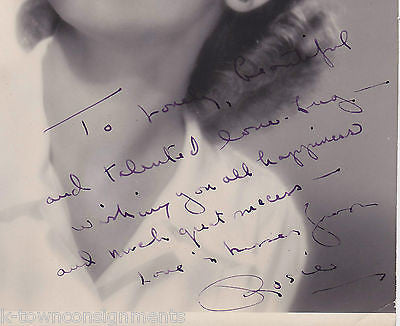 To Lovely, Beautiful
and talented Love-Bug -
wishing you all happiness
and much great success -
Love 'n kisses from
Rosie
k-townconsignments